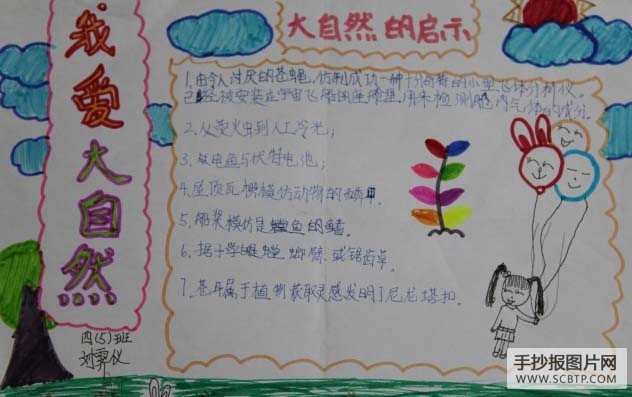 我爱大自然
大自然的启示
1.由令人讨厌的苍蝇,仿制成功一种十分奇特的小型气体分析仪。
已经被安装在宇宙飞船的座舱里,用来检测舱内气体的成分。
2.从萤火虫到人工冷光;
3.从电鱼与伏特电池;
4.屋顶瓦楞模仿动物的鳞甲。
5.船桨模仿是鱼的鳍。
6.据+学螳螂臂,或锯齿草。
7.苍耳属于植物获取灵感发明了尼龙塔扣。
四(5)班
刘羿仪
手抄报图片网
WWW.SCBTP.COM